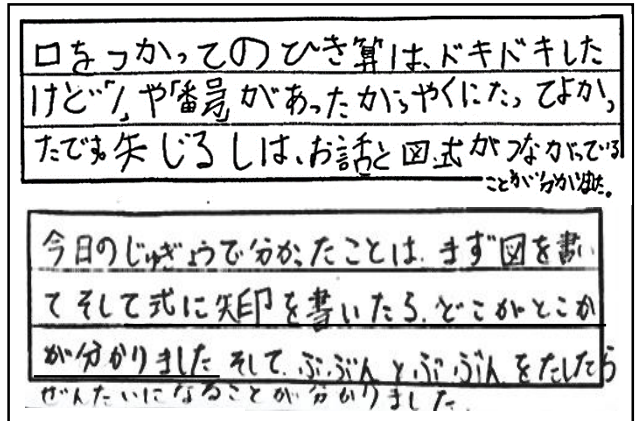 口をつかってのひき算は、ドキドキした
けど「/」や「番号」があったからやくにたってよかっ
たです。矢じるしは、お話と図、式がつながっている
ことが分かりました。
今日のじゅぎょうで分かったことは、まず図を書い
てそして式に矢印を書いたら、どこがどこか
が分かりました そして、ぶぶんとぶぶんをたしたら
ぜんたいになることが分かりました。